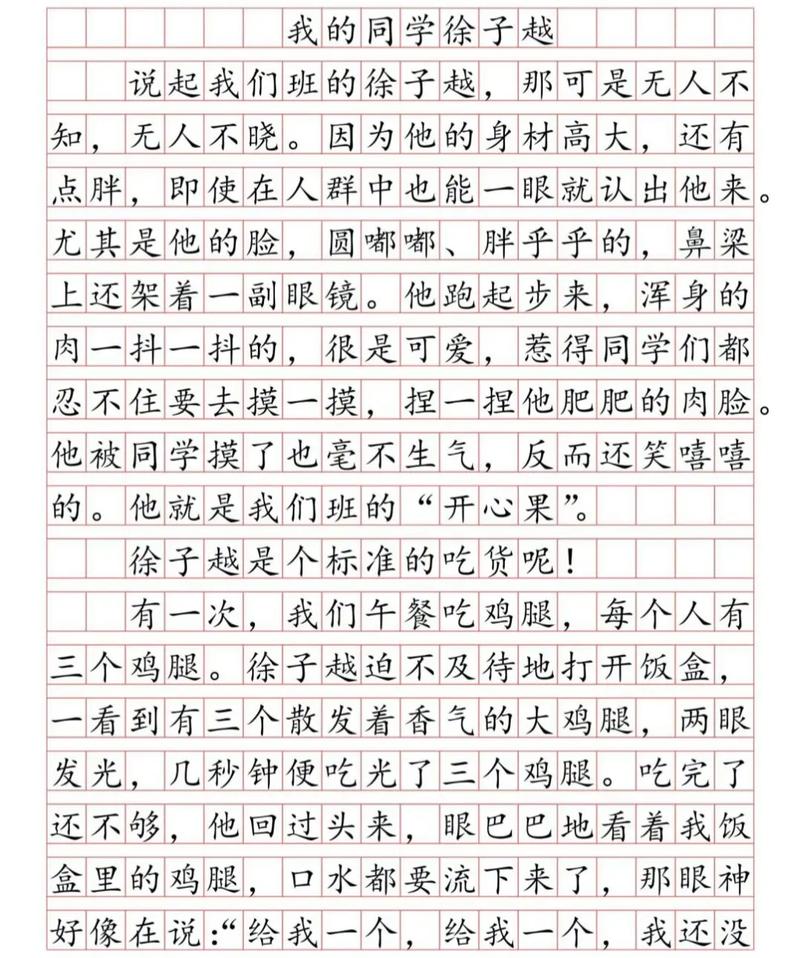 我的同学徐子越
说起我们班的徐子越，那可是无人不
知，无人不晓。因为他的身材高大，还有
点胖，即使在人群中也能一眼就认出他来。
尤其是他的脸，圆嘟嘟、胖乎乎的，鼻梁
上还架着一副眼镜。他跑起步来，浑身的
肉一抖一抖的，很是可爱，惹得同学们都
忍不住要去摸一摸，捏一捏他肥肥的肉脸。
他被同学摸了也毫不生气，反而还笑嘻嘻
的。他就是我们班的“开心果”。
徐子越是个标准的吃货呢！
有一次，我们午餐吃鸡腿，每个人有
三个鸡腿。徐子越迫不及待地打开饭盒，
一看到有三个散发着香气的大鸡腿，两眼
发光，几秒钟便吃光了三个鸡腿。吃完了
还不够，他回过头来，眼巴巴地看着我饭
盒里的鸡腿，口水都要流下来了，那眼神
好像在说：“给我一个，给我一个，我还没